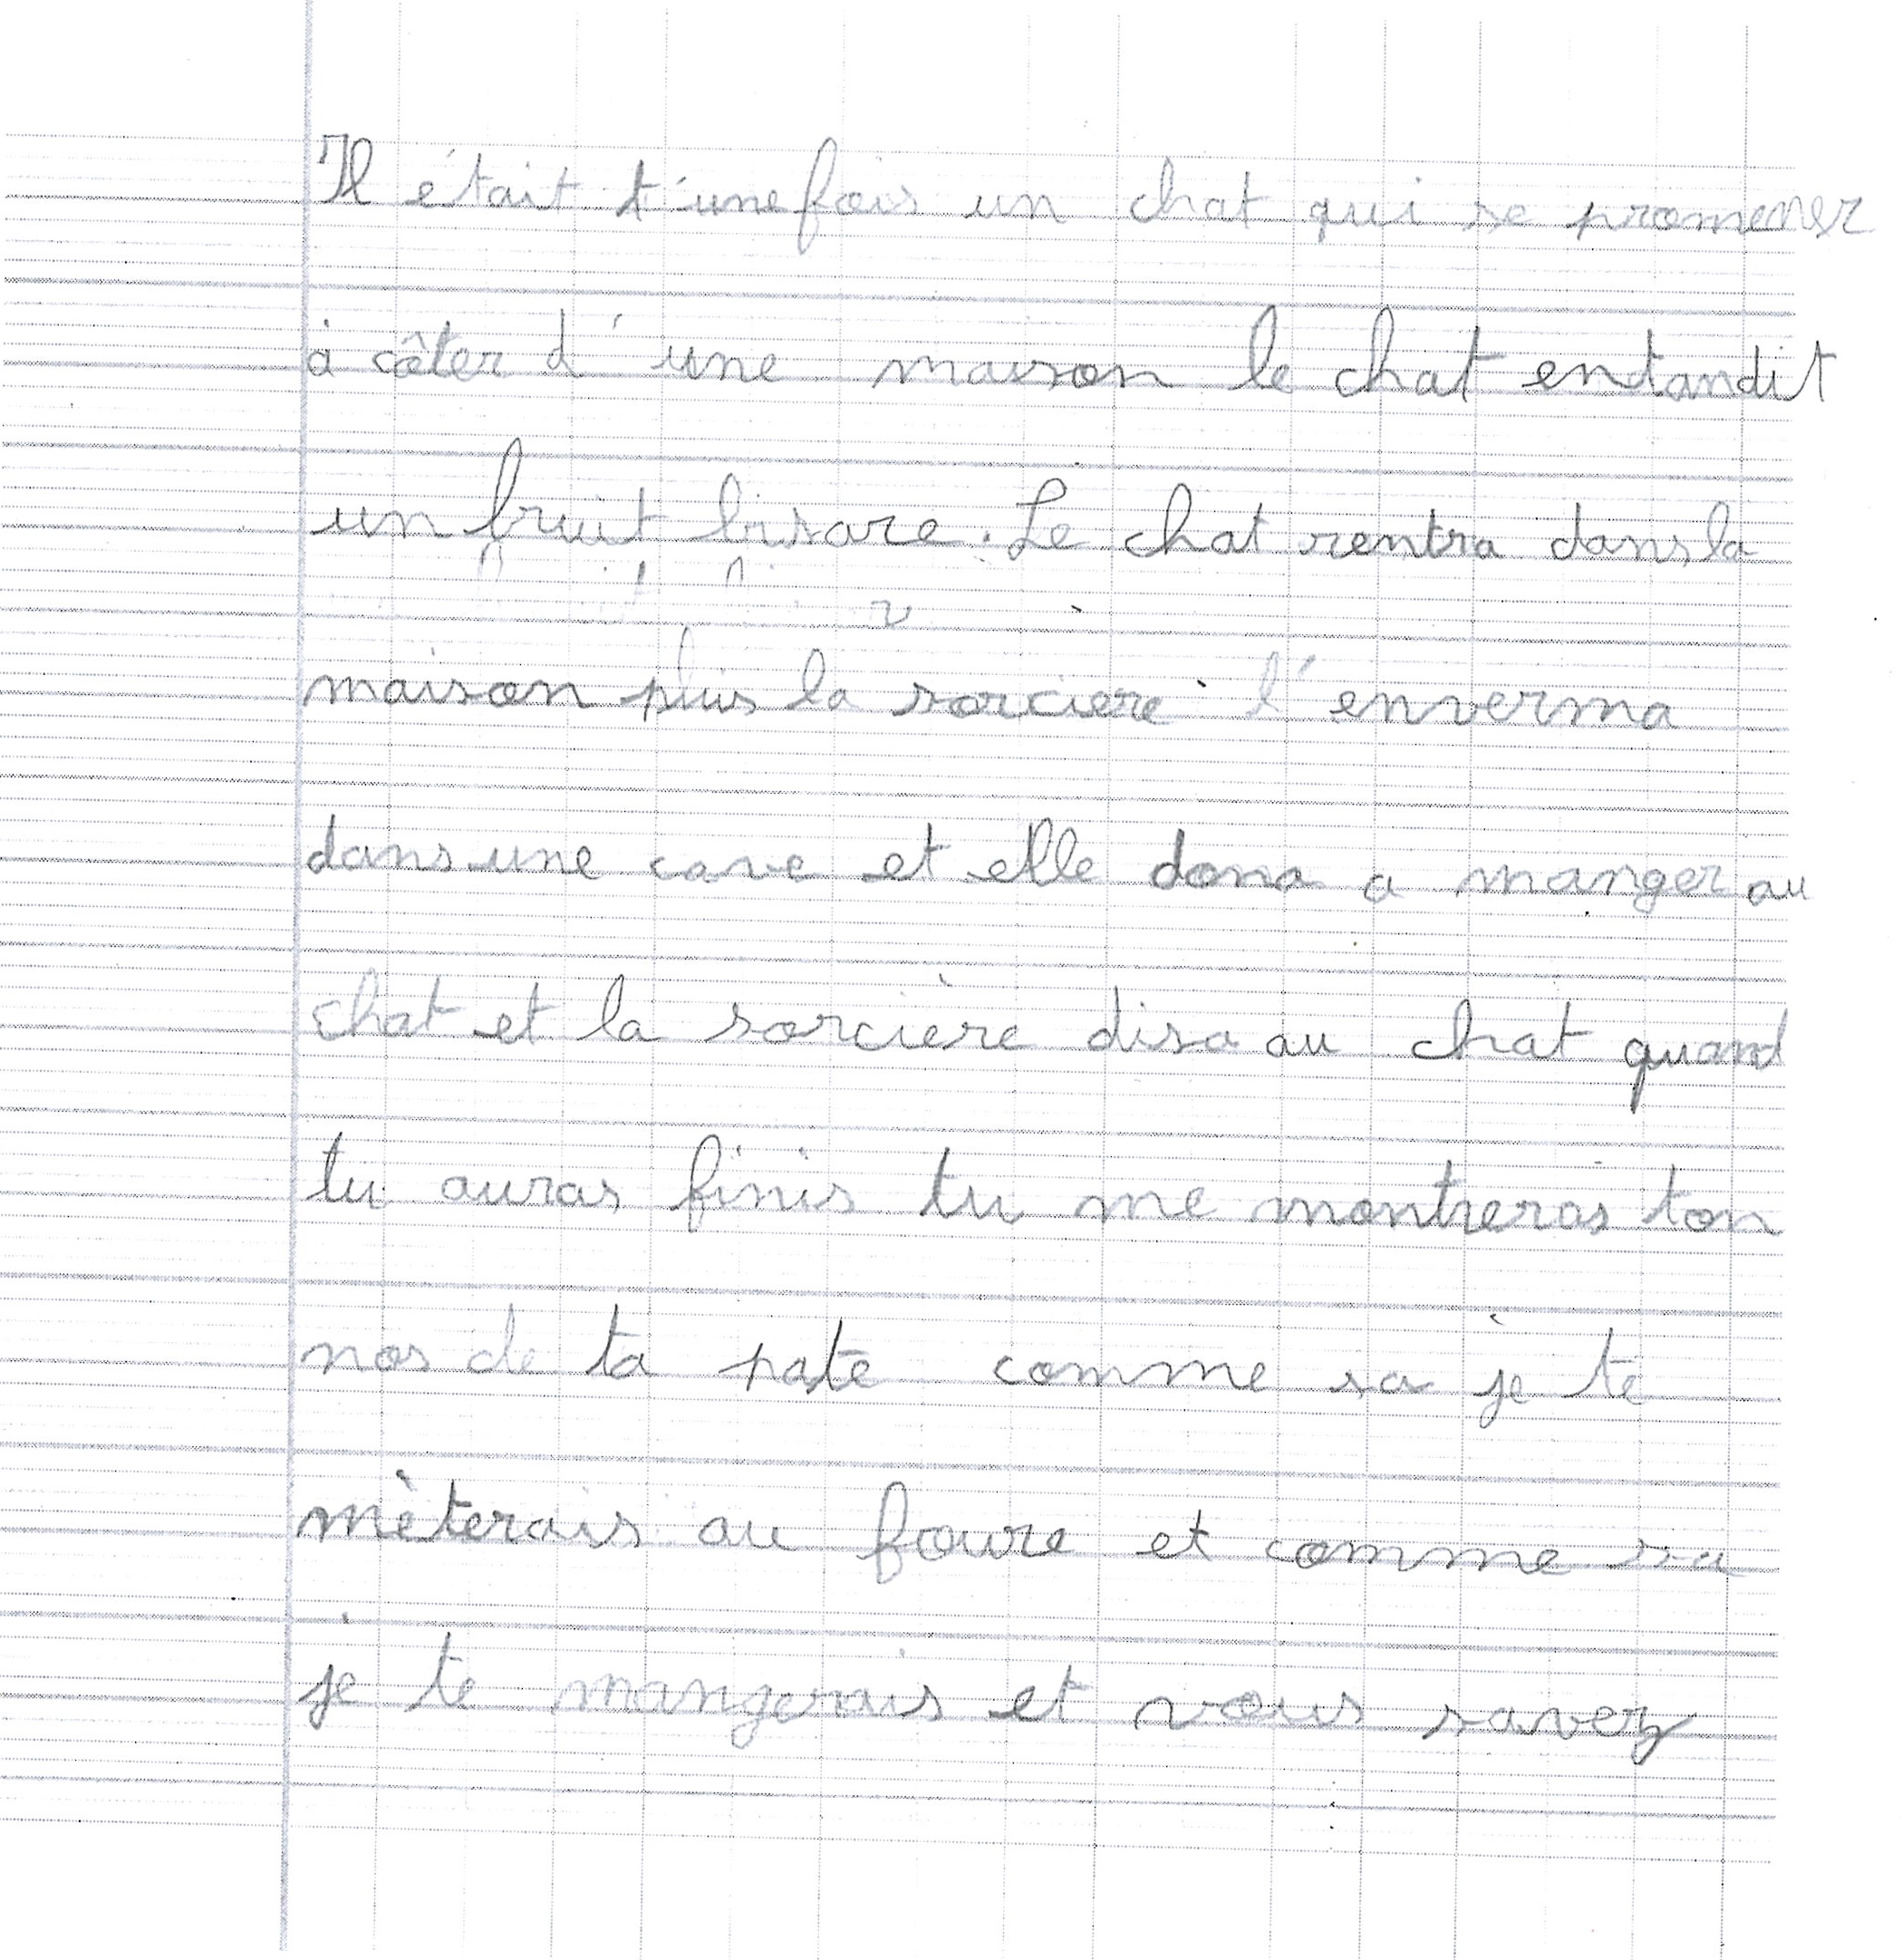 Il était t'une fois un chat qui se promener
à côter d'une maison le chat entandit
un bruit bisare. Le chat rentra dans la
maison plus la sorcière l'enverma
dans une cave et elle dona a manger au
chat et la sorcière disa au chat quand
tu auras finis tu me montreras ton
nos de ta pate comme sa je te
mèterais au foure et comme sa
je te mangerais et vous savez